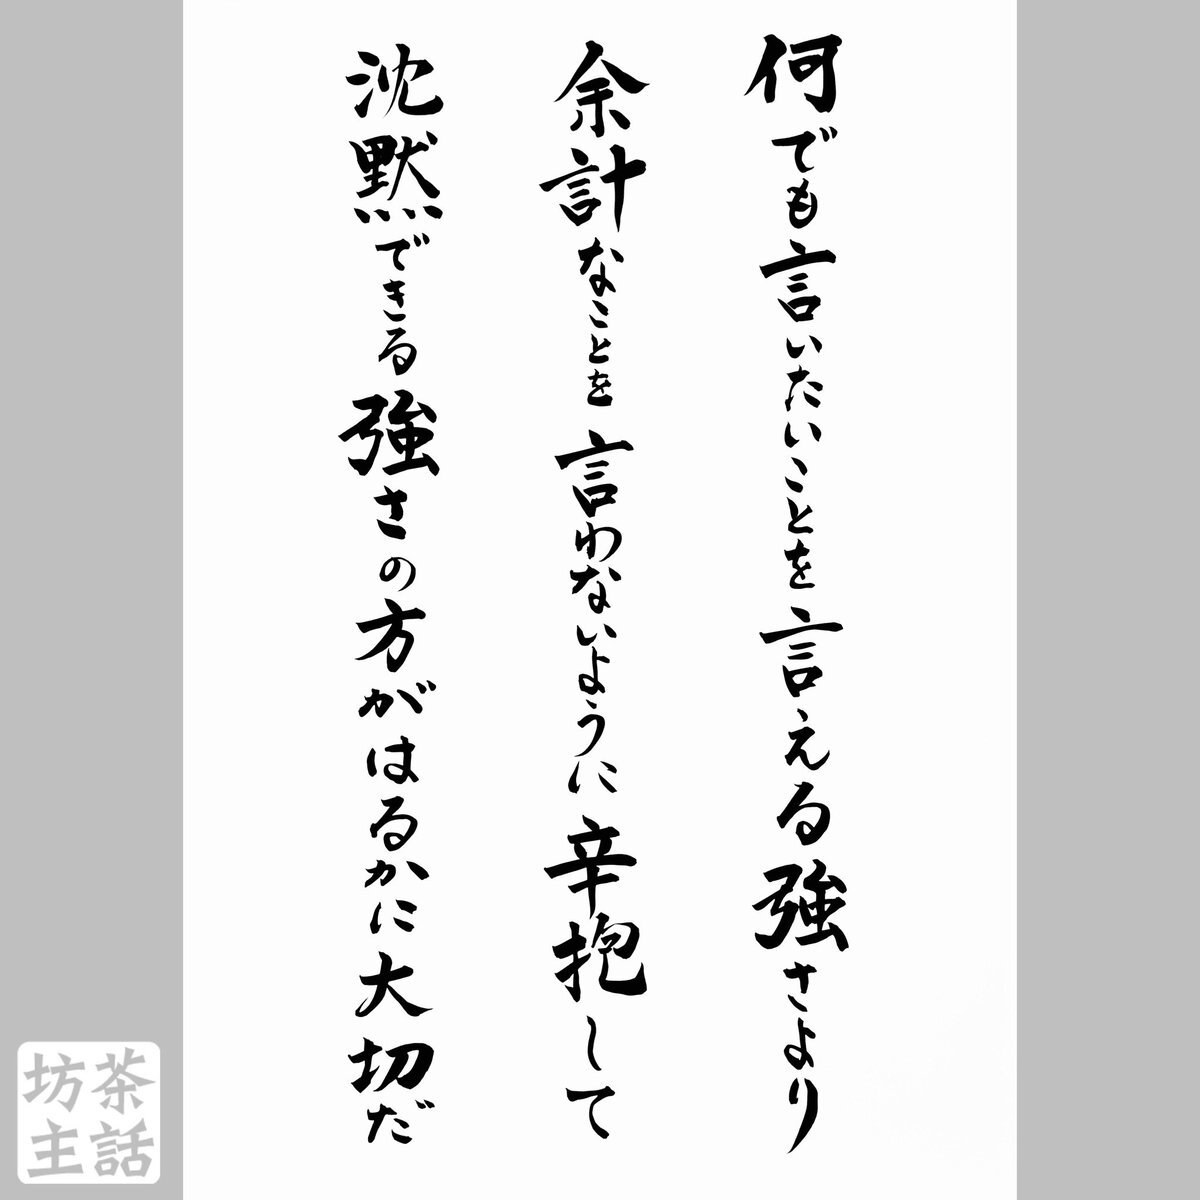 何でも言いたいことを言える強さより
余計なことを言わないように辛抱して
沈黙できる強さの方がはるかに大切だ
茶話
坊主